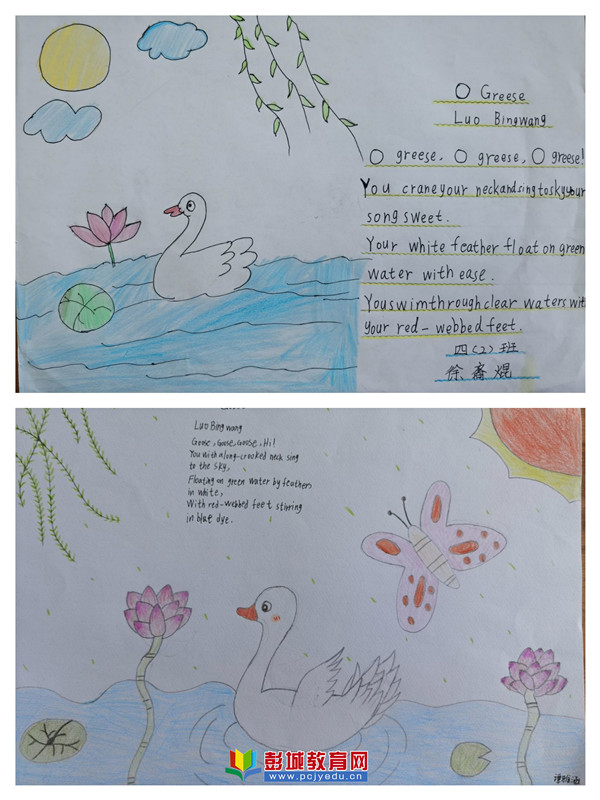 O Greese
Luo Bingwang
O greese. O greese, O greese!
You crane your neck and sing to sky your
song sweet.
Your white feather float on green
water with ease.
You swim through clear waters with
your red-webbed feet.
四(2)班
Luo Bing wang
Goose, Goose, Goose, Hi!
You with a long-crooked neck sing
to the sky,
Floating on green water by feathers
in white,
With red-webbed feet stirring
in blue dye.
彭城教育网
www.pcjyedu.cn